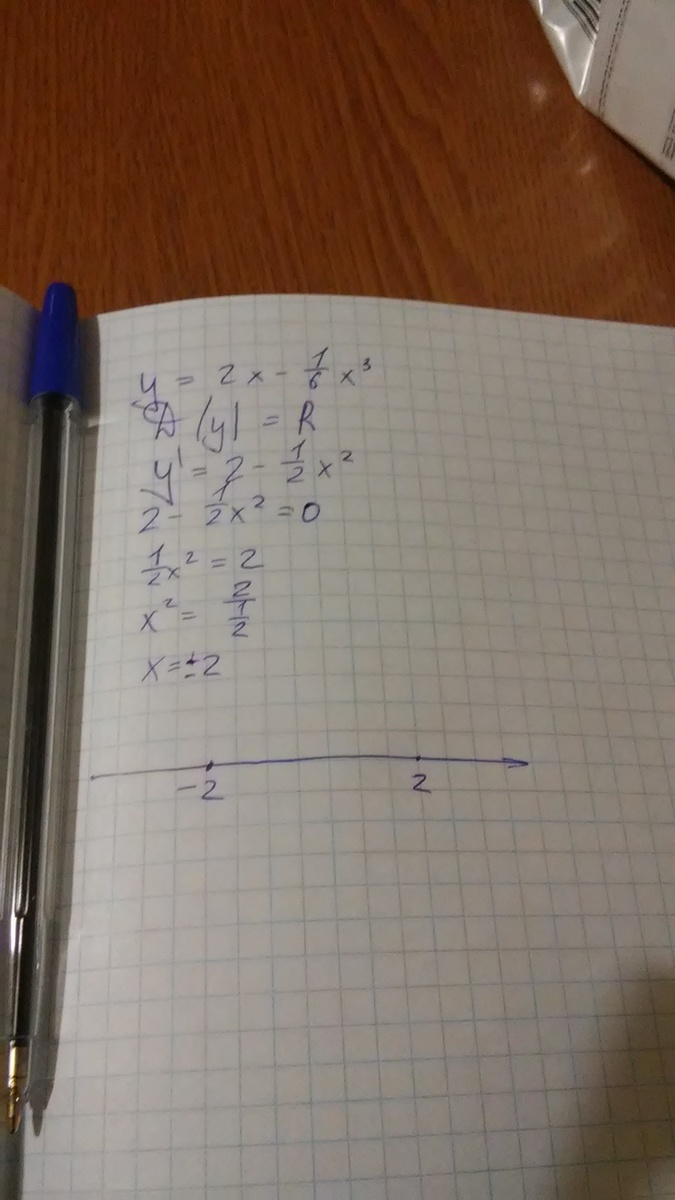 y = 2x - 1/6 x³
D(y) = R
y' = 2 - 1/2 x²
2 - 1/2 x² = 0
1/2 x² = 2
x² = 2/(1/2)
x = ±2
-2 2